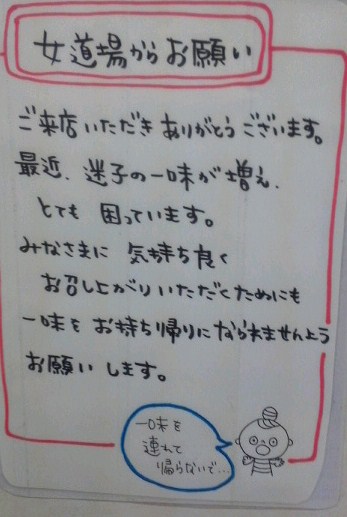 女道場からお願い
ご来店いただきありがとうございます。
最近、迷子の一味が増え、
とても困っています。
みなさまに気持ち良く
お召し上がりいただくためにも
一味をお持ち帰りになられませんよう
お願いします。
一味を
連れて
帰らないで…